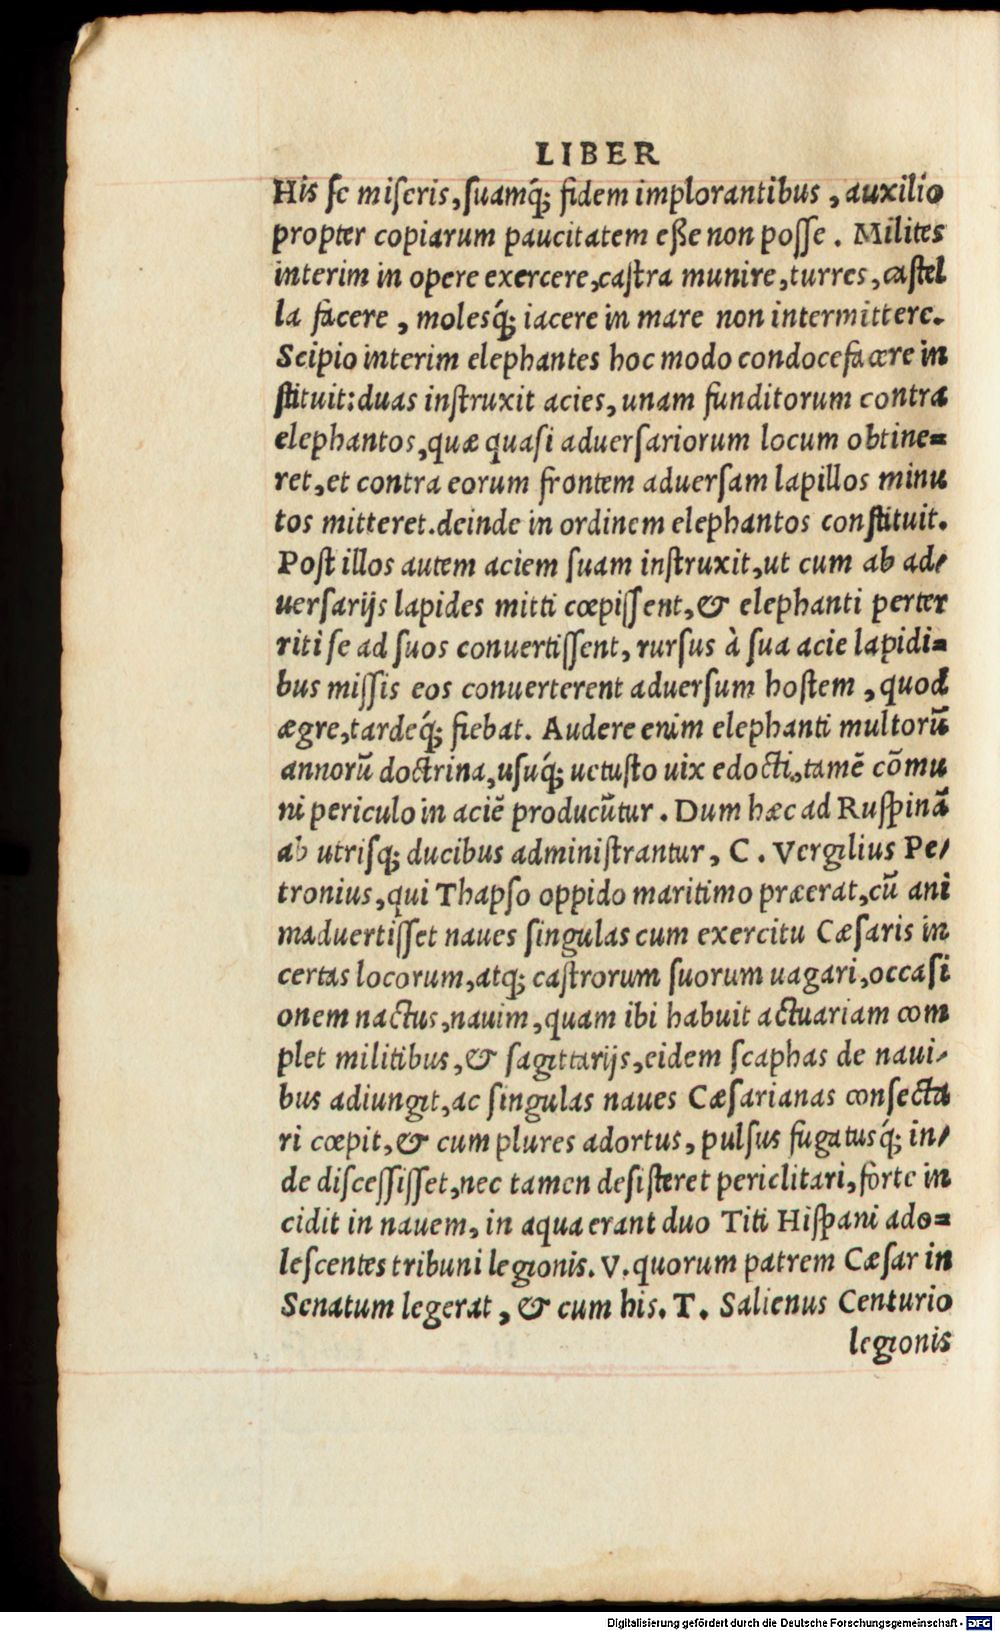 LIBER
His se miseris, suamq́; fidem implorantibus, auxilio
propter copiarum paucitatem eße non posse. Milites
interim in opere exercere, castra munire, turres, castel
la facere, molesq́; iacere in mare non intermittere.
Scipio interim elephantes hoc modo condocefacere in
stituit: duas instruxit acies, unam funditorum contra
elephantos, quæ quasi aduersariorum locum obtine=
ret, et contra eorum frontem aduersam lapillos minu
tos mitteret. deinde in ordinem elephantos constituit.
Post illos autem aciem suam instruxit, ut cum ab ad/
uersarijs lapides mitti cœpissent, & elephanti perter
riti se ad suos conuertissent, rursus à sua acie lapidi=
bus missis eos conuerterent aduersum hostem, quod
ægre, tardeq́; fiebat. Audere enim elephanti multorũ
annorũ doctrina, usuq́; uetusto uix edocti, tamẽ cõmu
ni periculo in aciẽ producũtur. Dum hæc ad Ruspinã
ab utrisq; ducibus administrantur, C. Vergilius Pe/
tronius, qui Thapso oppido maritimo præerat, cũ ani
maduertisset naues singulas cum exercitu Cæsaris in
certas locorum, atq; castrorum suorum uagari, occasi
onem nactus, nauim, quam ibi habuit actuariam com
plet militibus, & sagittarijs, eidem scaphas de naui/
bus adiungit, ac singulas naues Cæsarianas consecta
ri cœpit, & cum plures adortus, pulsus fugatusq́; in/
de discessisset, nec tamen desisteret periclitari, forte in
cidit in nauem, in aqua erant duo Titi Hispani ado=
lescentes tribuni legionis. V. quorum patrem Cæsar in
Senatum legerat, & cum his. T. Salienus Centurio
legionis
Digitalisierung gefördert durch die Deutsche Forschungsgemeinschaft - DFG